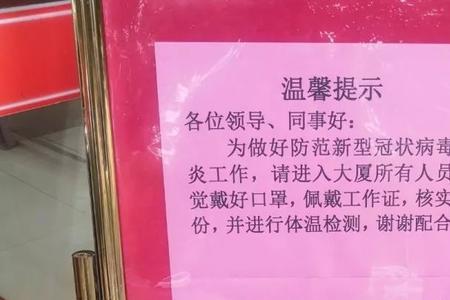 温馨提示
各位领导、同事好：
为做好防范新型冠状病毒
炎工作，请进入大厦所有人员
觉戴好口罩，佩戴工作证，核实
份，并进行体温检测，谢谢配合